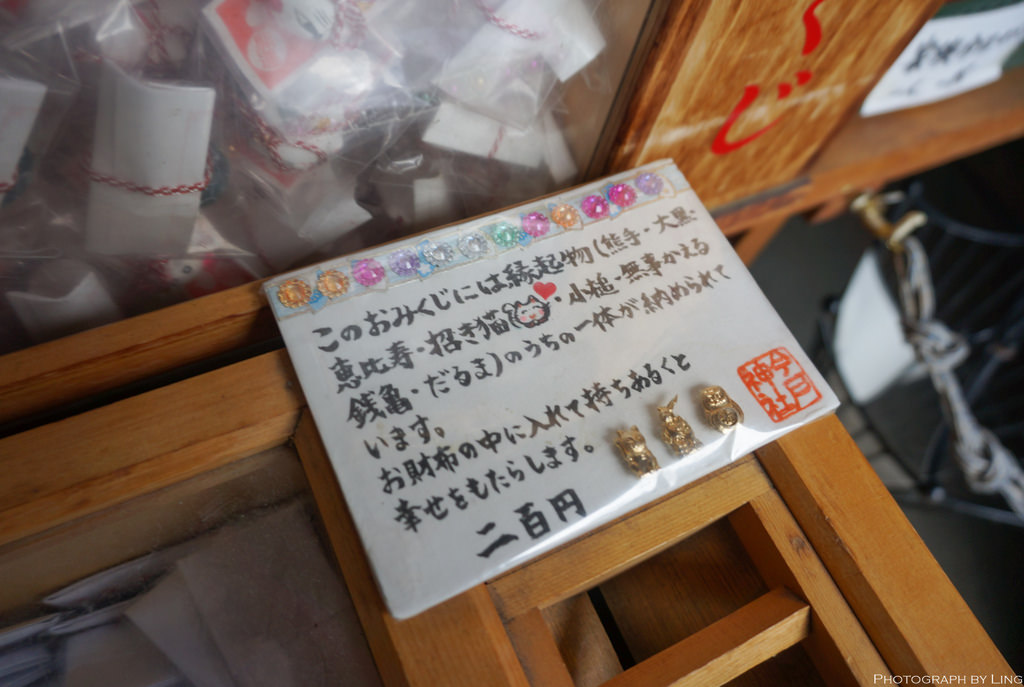 くじ
このおみくじには縁起物(熊手・大黒・
恵比寿・招き猫・小槌・無事かえる
銭亀・だるま)のうちの一体が納められて
います。
お財布の中に入れて持ちあるくと
幸せをもたらします。
二百円
今戸
神社
PHOTOGRAPH BY LING